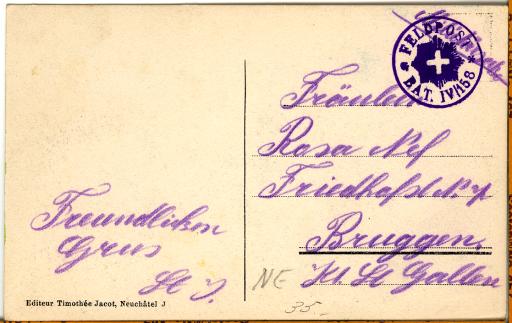 FELDPOST
BAT. IV/158
Fräulein
Rosa Nef
Friedhofst. No. 7
Bruggen.
Kt. St Gallen
Freundlichen
Grus
NE
35.-
Editeur Timothée Jacot, Neuchâtel J